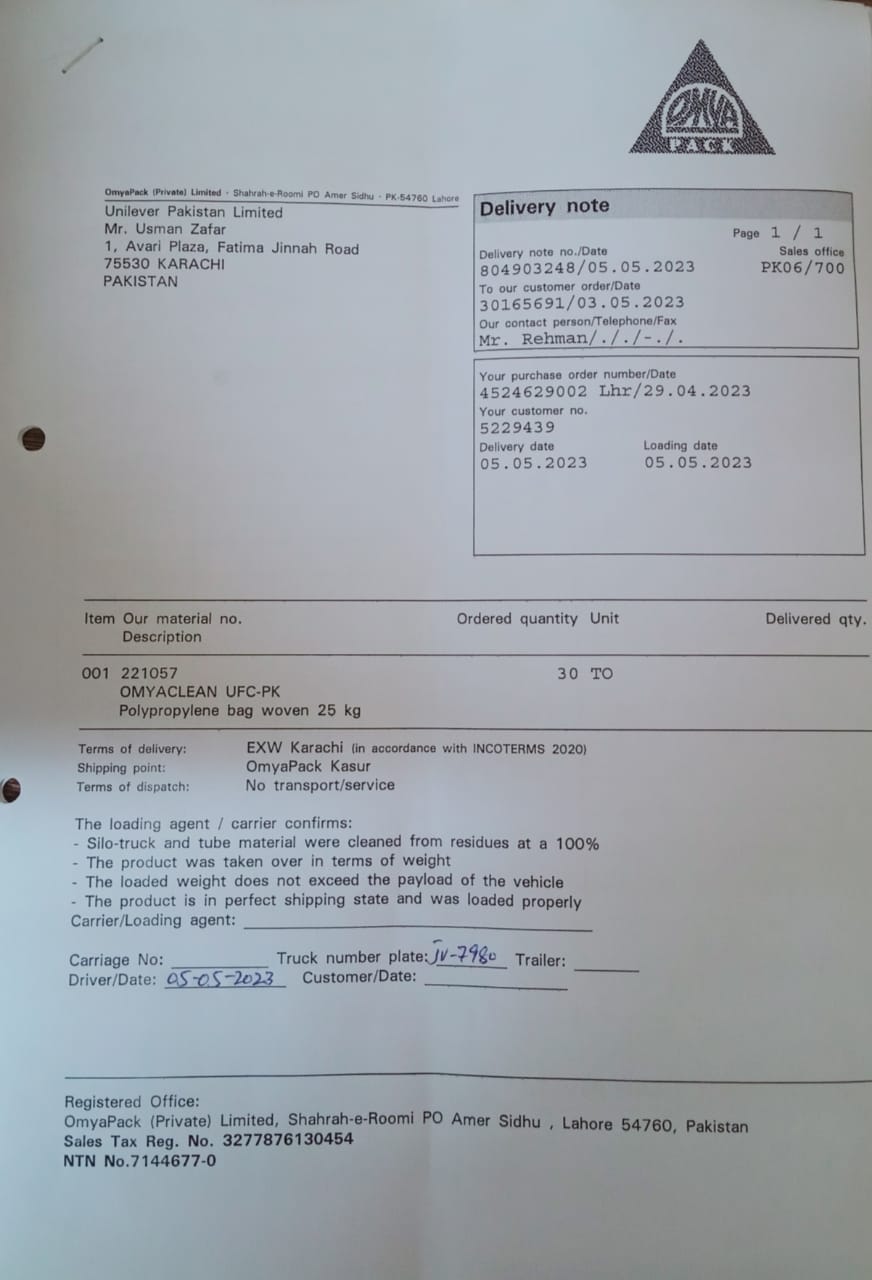 OMYA
PACK
OmyaPack (Private) Limited · Shahrah-e-Roomi PO Amer Sidhu · PK-54760 Lahore
Unilever Pakistan Limited
Mr. Usman Zafar
1, Avari Plaza, Fatima Jinnah Road
75530 KARACHI
PAKISTAN
Delivery note
Page 1 / 1
Delivery note no./Date Sales office
804903248/05.05.2023 PK06/700
To our customer order/Date
30165691/03.05.2023
Our contact person/Telephone/Fax
Mr. Rehman/././-./.
Your purchase order number/Date
4524629002 Lhr/29.04.2023
Your customer no.
5229439
Delivery date Loading date
05.05.2023 05.05.2023
Item Our material no. Ordered quantity Unit Delivered qty.
Description
001 221057 30 TO
OMYACLEAN UFC-PK
Polypropylene bag woven 25 kg
Terms of delivery: EXW Karachi (in accordance with INCOTERMS 2020)
Shipping point: OmyaPack Kasur
Terms of dispatch: No transport/service
The loading agent / carrier confirms:
- Silo-truck and tube material were cleaned from residues at a 100%
- The product was taken over in terms of weight
- The loaded weight does not exceed the payload of the vehicle
- The product is in perfect shipping state and was loaded properly
Carrier/Loading agent:
Carriage No: Truck number plate: JV-7980 Trailer:
Driver/Date: 05-05-2023 Customer/Date:
Registered Office:
OmyaPack (Private) Limited, Shahrah-e-Roomi PO Amer Sidhu , Lahore 54760, Pakistan
Sales Tax Reg. No. 3277876130454
NTN No.7144677-0